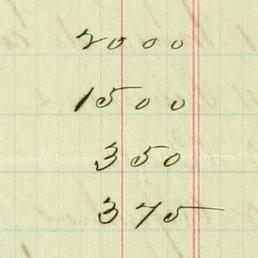 2000
1500
350
375